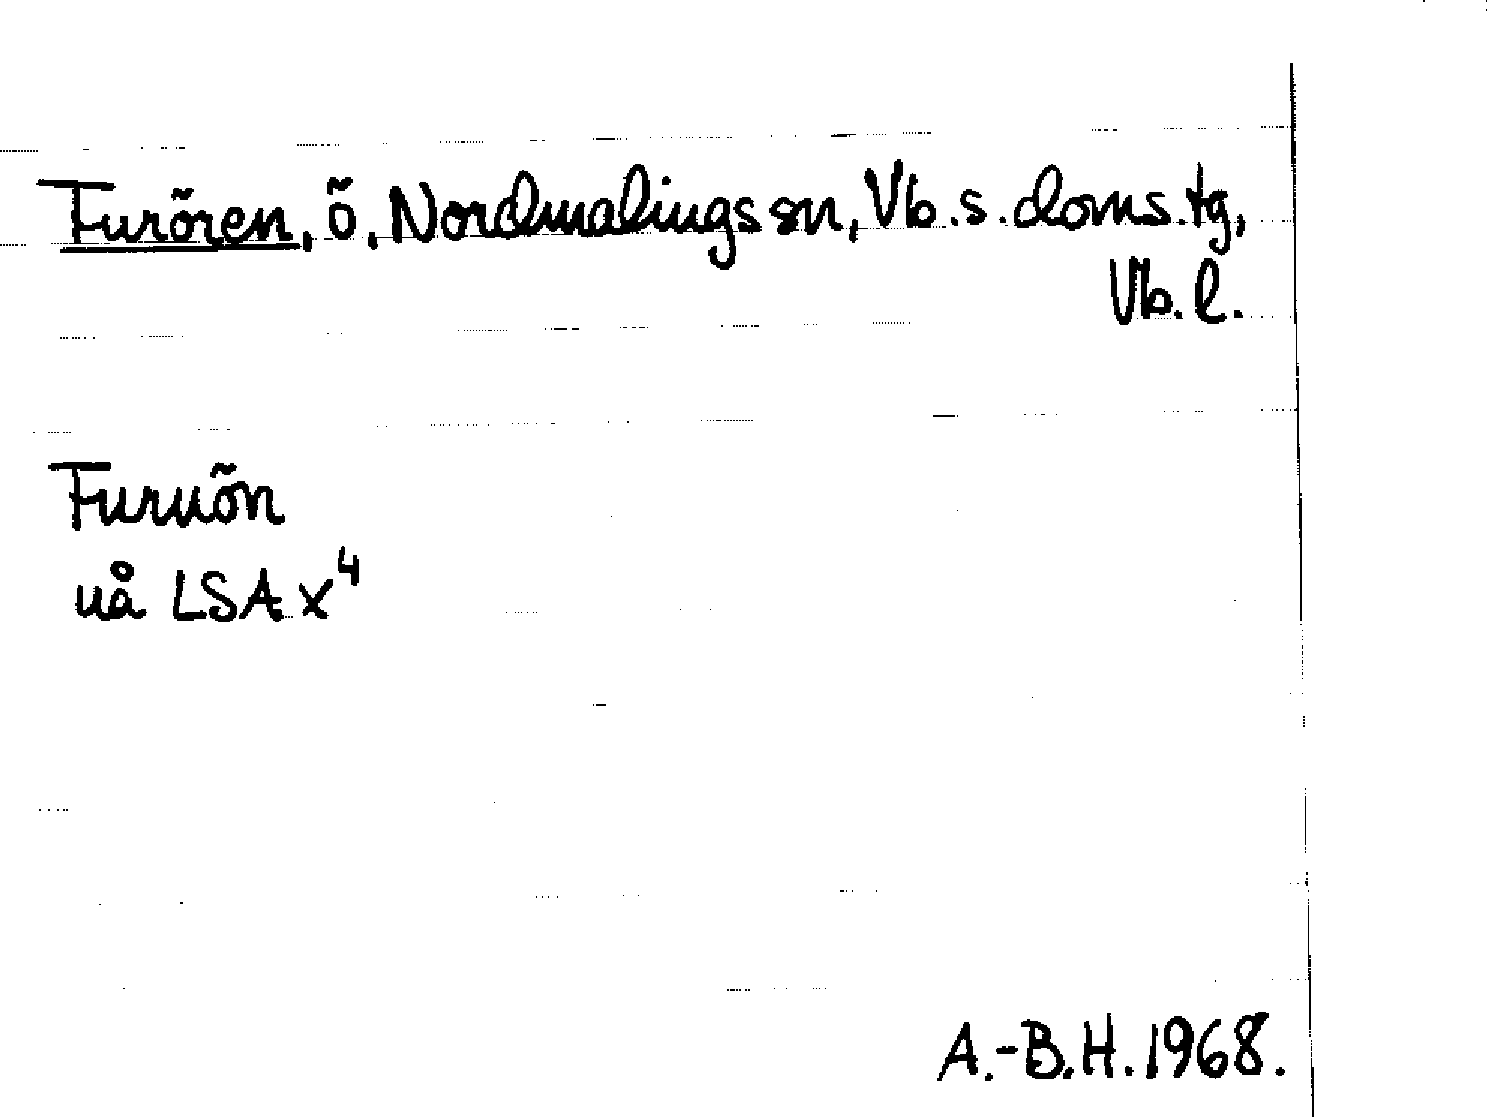 Furören, ö, Nordmalings sn, Vb. s. doms. tg,
Vb. l.
Furuön
uå LSA x⁴
A.-B.H. 1968.